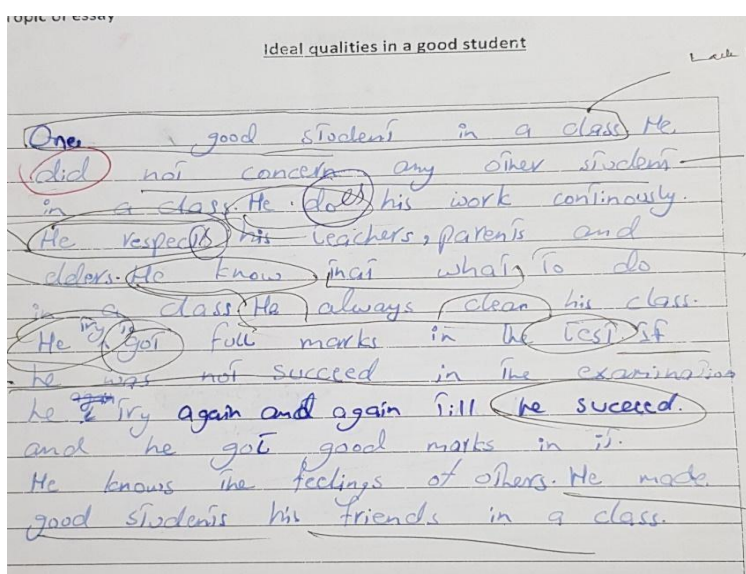 Topic of essay
Ideal qualities in a good student
One, good student in a class. He
did not concern any other student
in a class. He does his work continously.
He respects his teachers, parents and
elders. He know that what to do
in a class. He always clean his class.
He try is got full marks in the test if
he was not succeed in the examination
he try again and again till he suceed.
and he got good marks in it.
He knows the feelings of others. He made
good students his friends in a class.